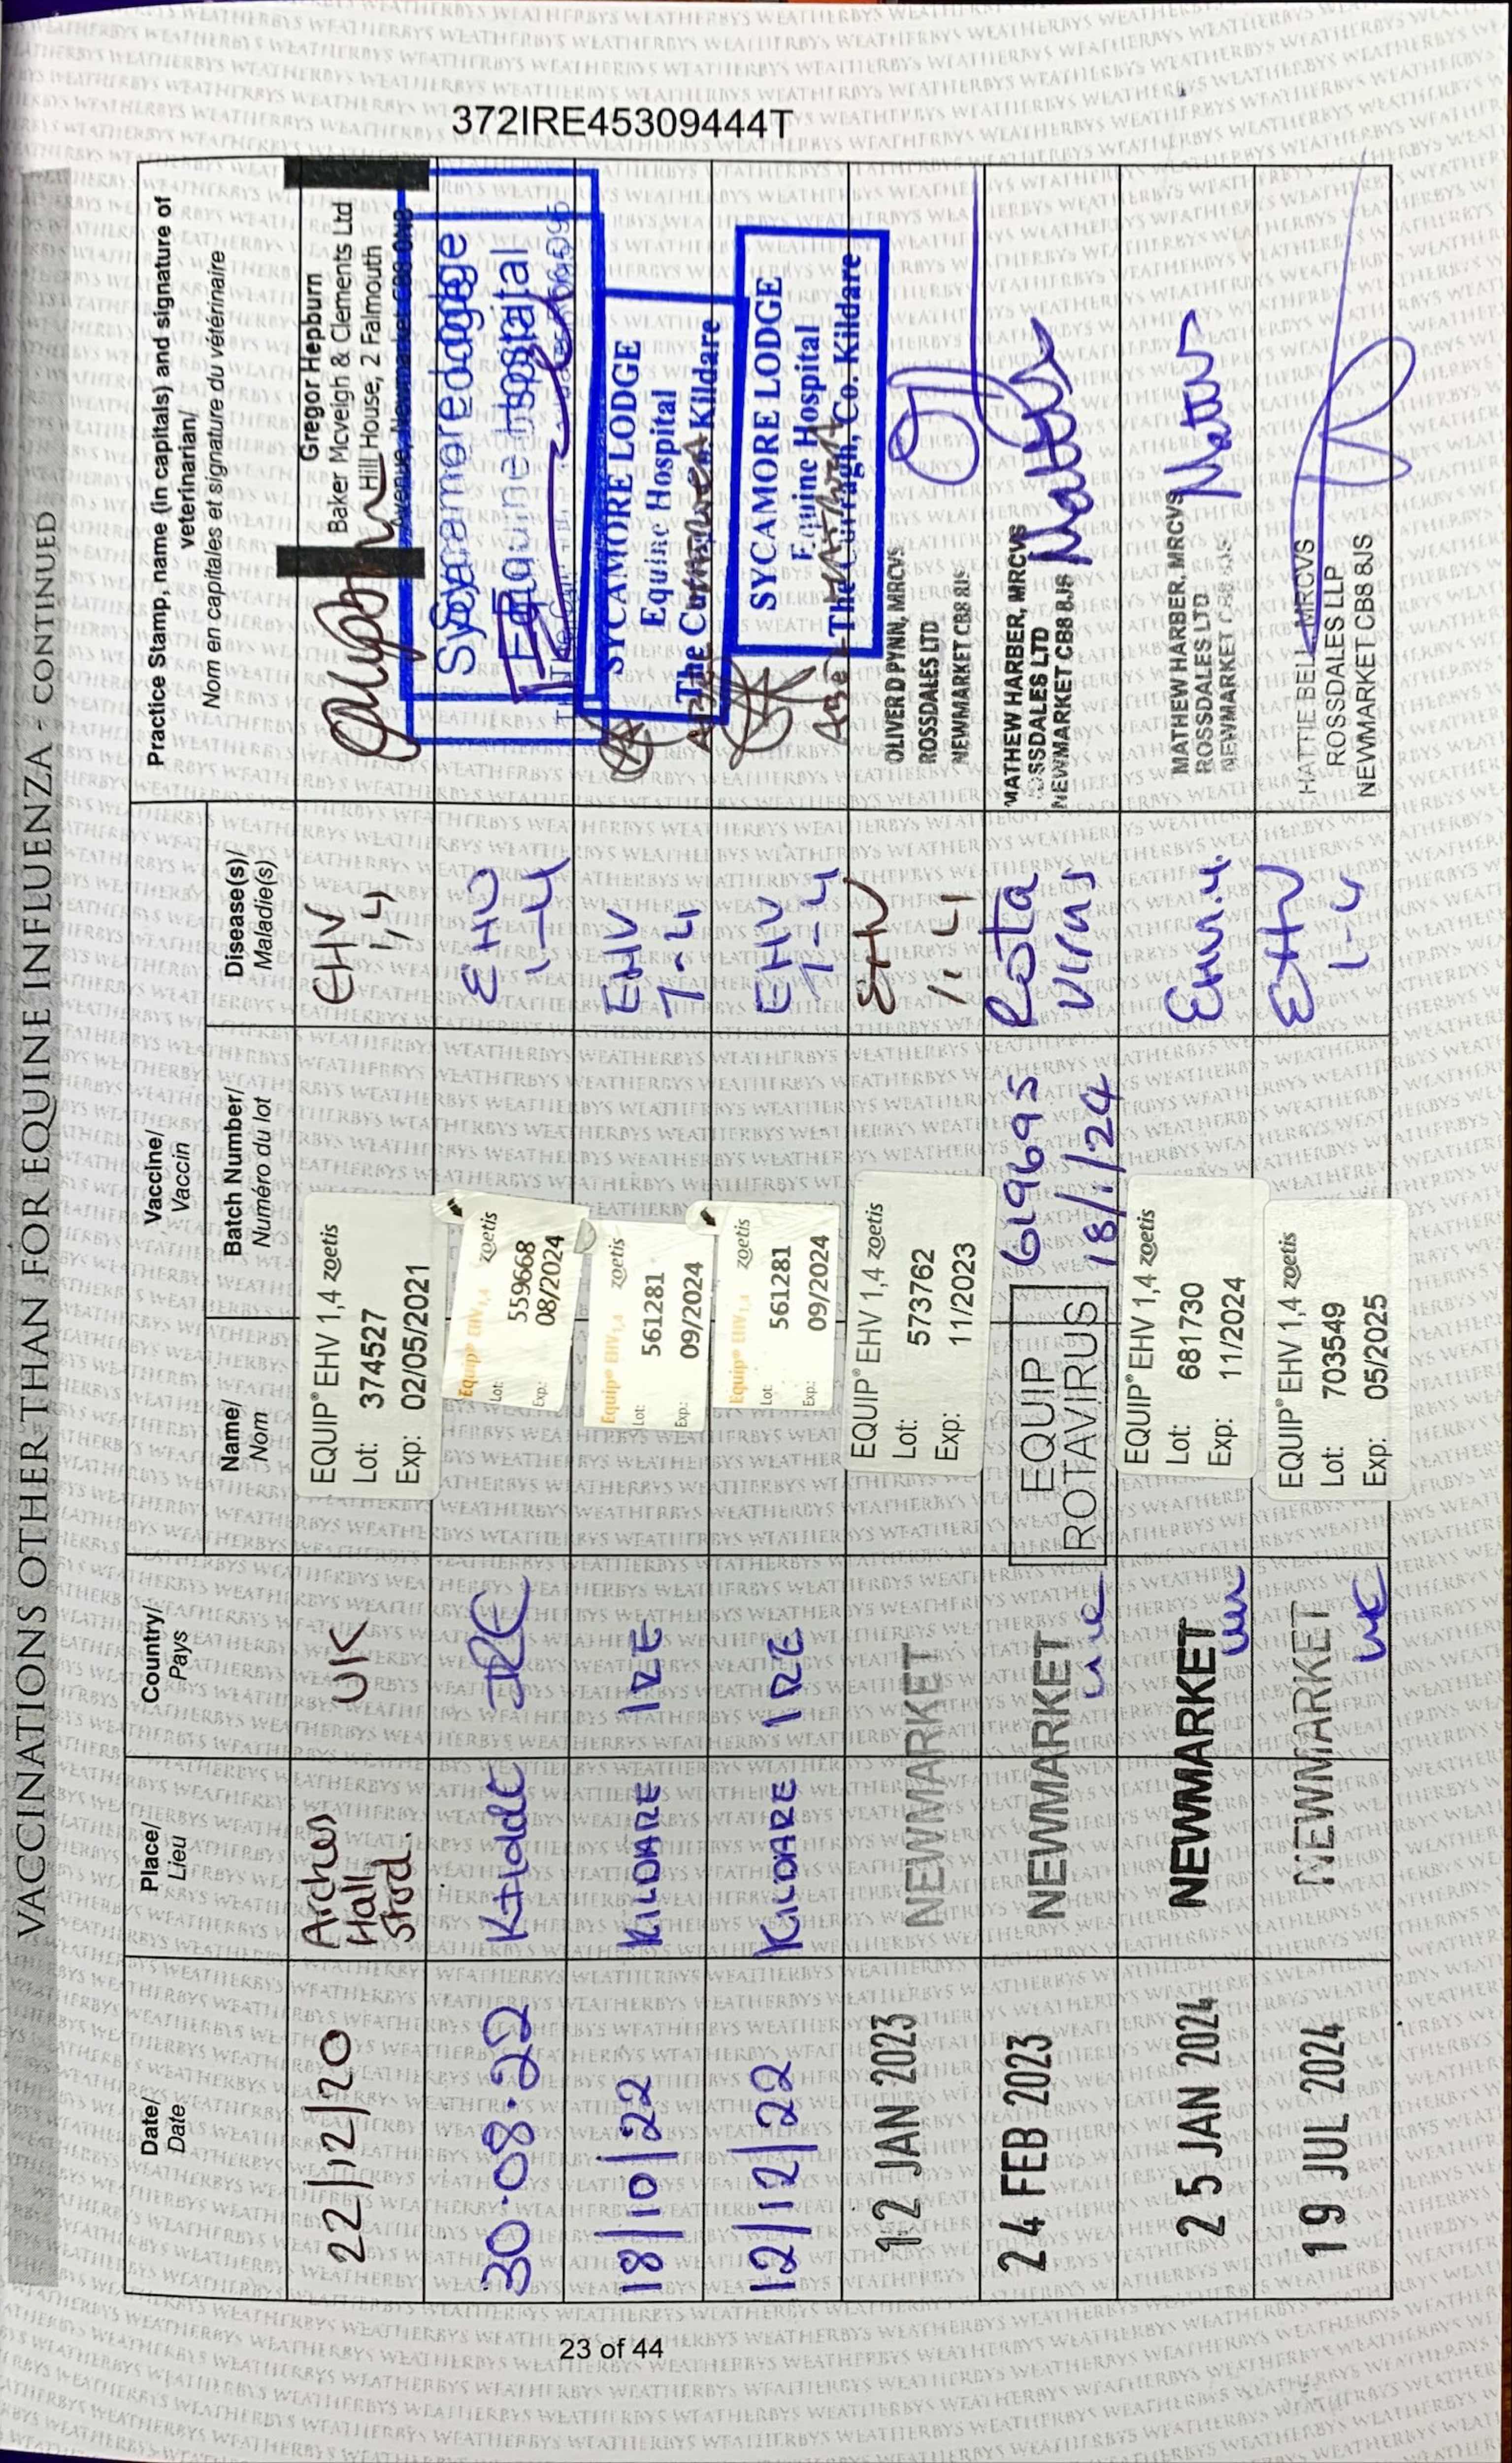 372IRE45309444T
VACCINATIONS OTHER THAN FOR EQUINE INFLUENZA - CONTINUED
Date/
Date
Place/
Lieu
Country/
Pays
Vaccine/
Vaccin
Name/
Nom
Batch Number/
Numéro du lot
Disease(s)/
Maladie(s)
Practice Stamp, name (in capitals) and signature of
veterinarian/
Nom en capitales et signature du vétérinaire
22/12/20
Arches
Hall
Stud.
UK
EQUIP® EHV 1,4 zoetis
Lot: 374527
Exp: 02/05/2021
EHV
1,4
Gregor Hepburn
Baker Mcveigh & Clements Ltd
Hill House, 2 Falmouth
Avenue, Newmarket CB8 0NB
30.08.22
Kildare
IRE
Equip® EHV1,4 zoetis
Lot: 559668
Exp: 08/2024
EHV
1-4
Sycamore Lodge
Equine Hospital
18/10/22
KILDARE
IRE
Equip® EHV1,4 zoetis
Lot: 561281
Exp: 09/2024
EHV
1-4
SYCAMORE LODGE
Equine Hospital
The Curragh, Co. Kildare
12/12/22
KILDARE
IRE
Equip® EHV1,4 zoetis
Lot: 561281
Exp: 09/2024
EHV
1-4
SYCAMORE LODGE
Equine Hospital
The Curragh, Co. Kildare
12 JAN 2023
NEWMARKET
EQUIP® EHV 1,4 zoetis
Lot: 573762
Exp: 11/2023
EHV
1,4
OLIVER D PYNN, MRCVS
ROSSDALES LTD
NEWMARKET CB8 8JS
24 FEB 2023
NEWMARKET
UK
EQUIP
ROTAVIRUS
619695
18/1/24
Rota
Virus
MATHEW HARBER, MRCVS
ROSSDALES LTD
NEWMARKET CB8 8JS
25 JAN 2024
NEWMARKET
UK
EQUIP® EHV 1,4 zoetis
Lot: 681730
Exp: 11/2024
EHV1.4
MATHEW HARBER, MRCVS
ROSSDALES LTD
NEWMARKET CB8 8JS
19 JUL 2024
NEWMARKET
UK
EQUIP® EHV 1,4 zoetis
Lot: 703549
Exp: 05/2025
EHV
1-4
HATTIE BELL MRCVS
ROSSDALES LLP
NEWMARKET CB8 8JS
23 of 44